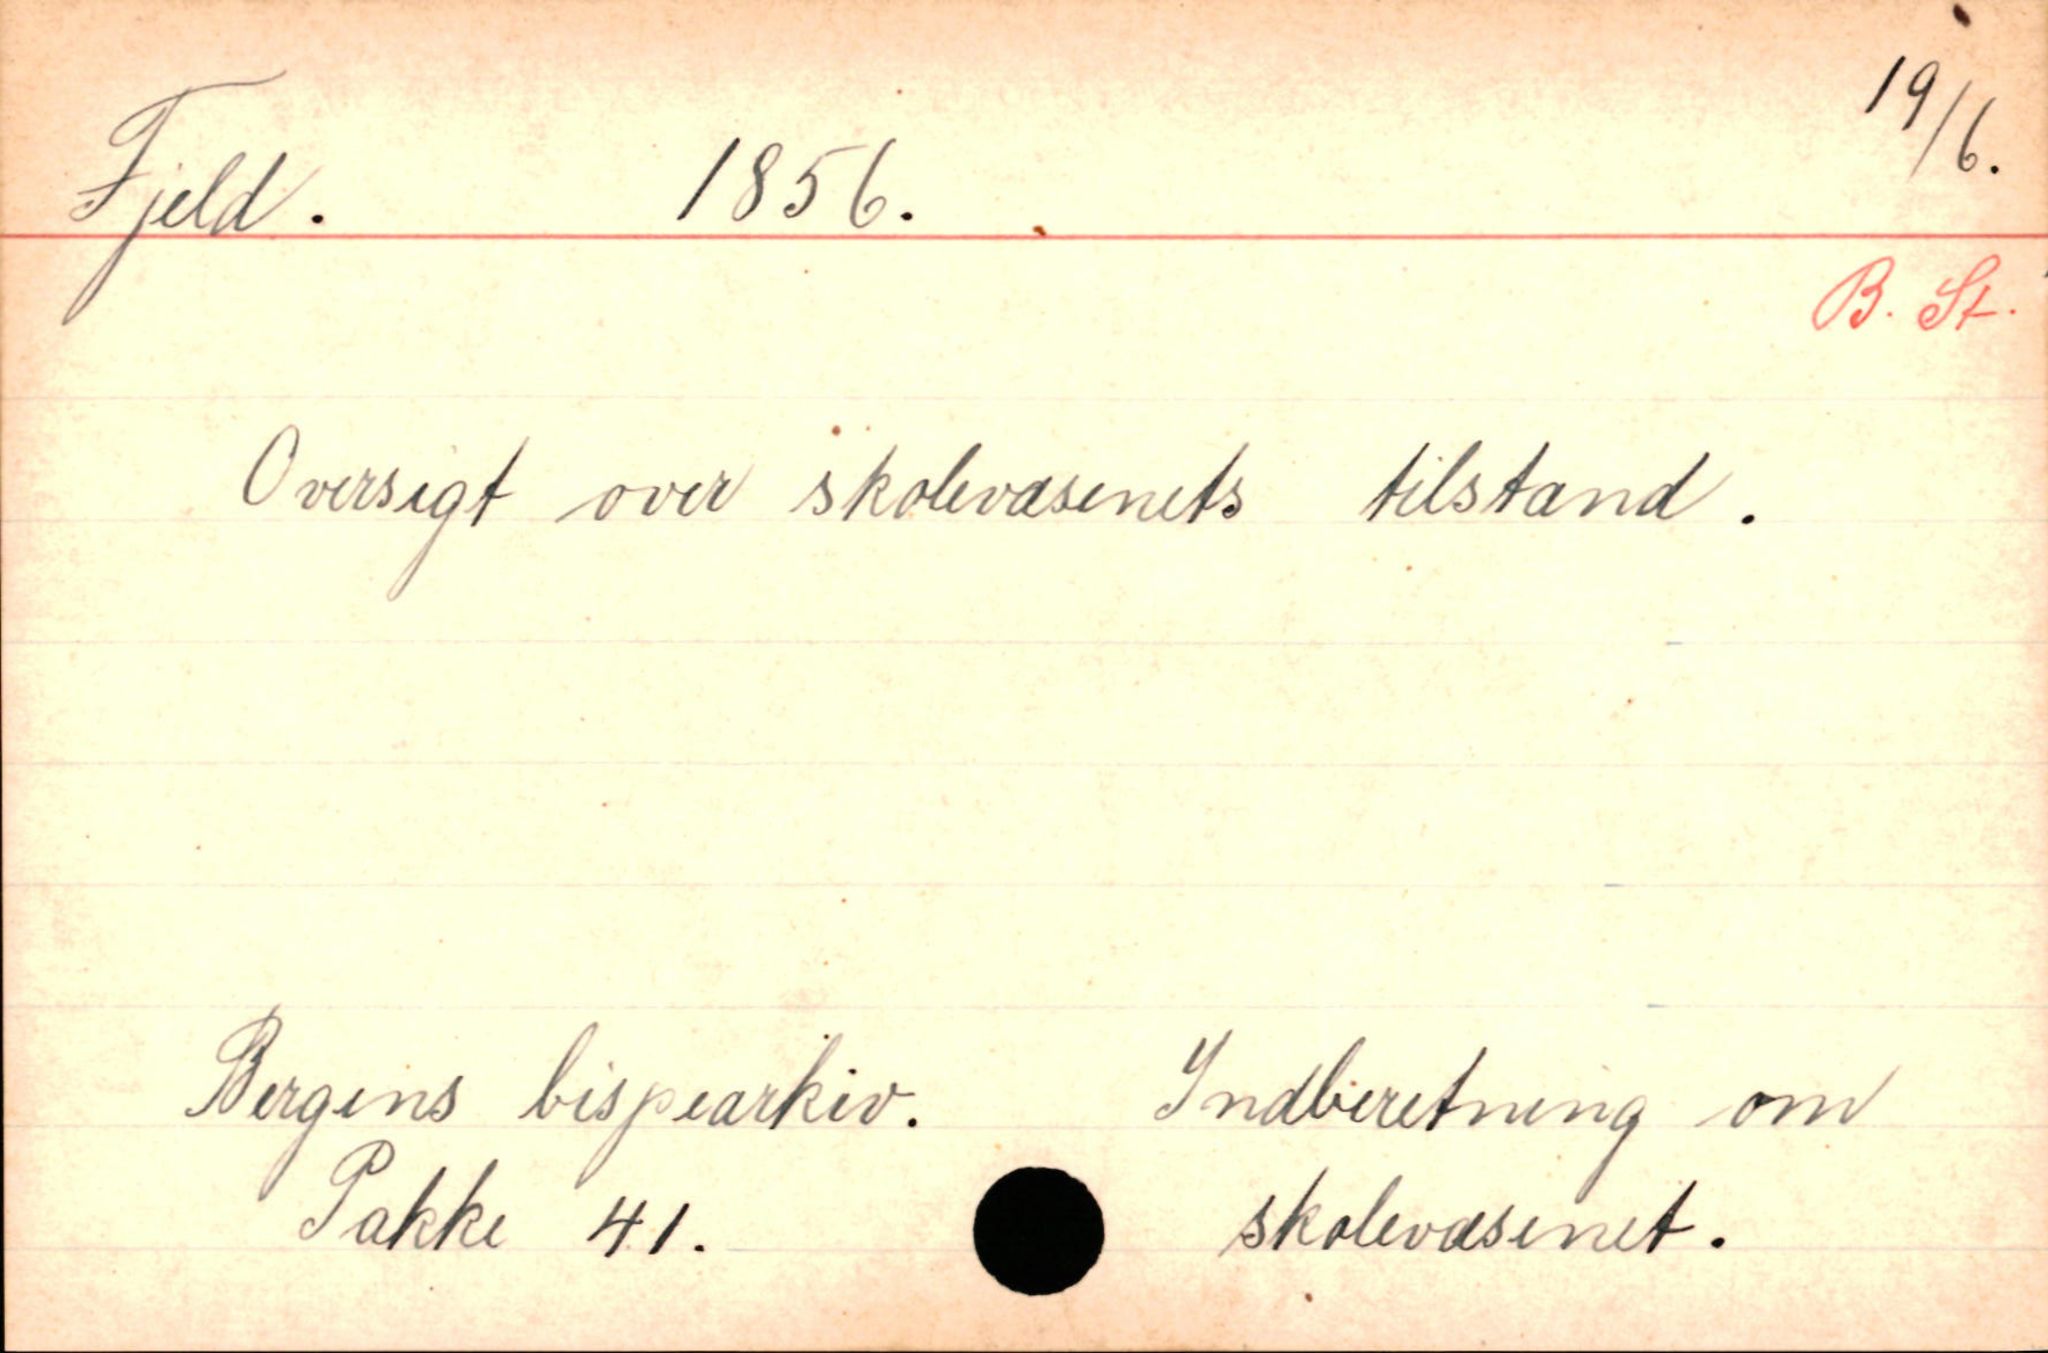 Fjeld. 1856. 19/6.
B. St.
Oversigt over skolevæsenets tilstand.
Bergens bispearkiv. Indberetning om
Pakke 41. skolevæsenet.